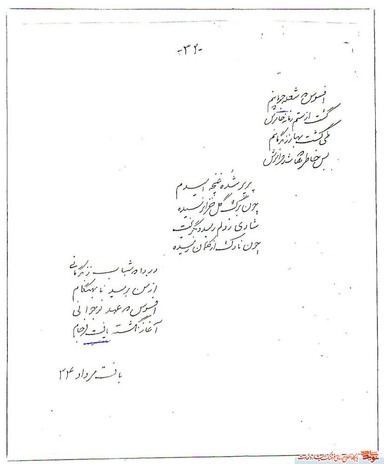 -۳۲-
افسوس که شعله جوانیم
گشت از ستم زمانه خاموش
طی گشت بهار زندگانیم
بس خاطره‌ها شد فراموش
پرپر شده غنچه امیدم
چون برگ گل خزان رسیده
شادی ز دلم رمید و بگریخت
چون ناوک از کمان رسیده
دردا که شباب زندگانی
از من برسید نابهنگام
افسوس که عهد نوجوانی
آغاز نگشته یافت انجام
بافت مرداد ۳۴